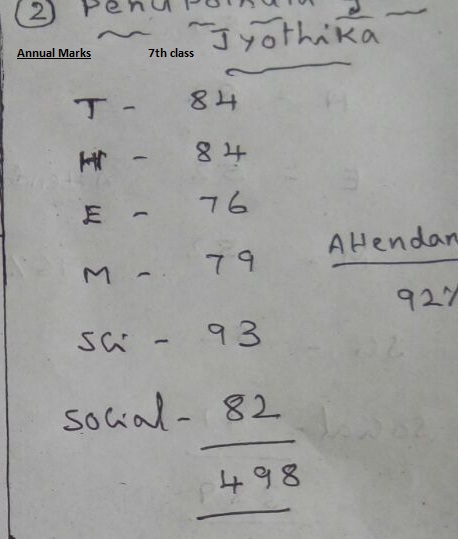 ②
Jyothika
Annual Marks 7th class
T - 84
H - 84
E - 76
M - 79
Attendan
92%
Sci - 93
Social - 82
498